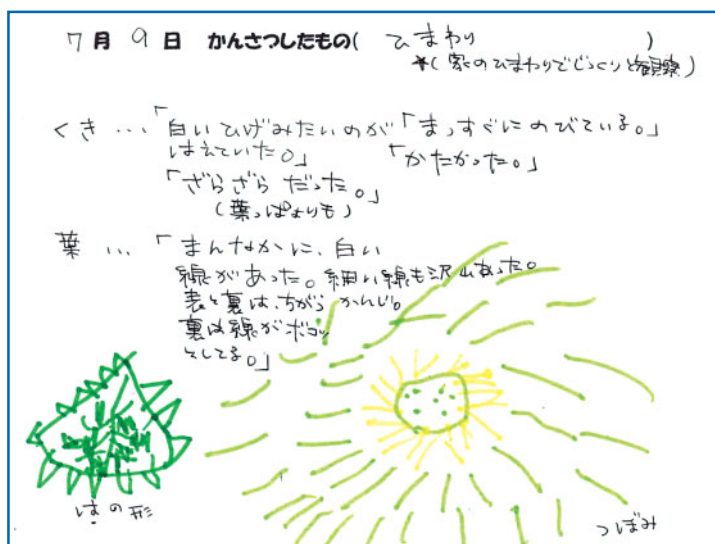 7月9日 かんさつしたもの( ひまわり )
*(家のひまわりでじっくりと観察)
くき…「白いひげみたいのが「まっすぐにのびている。」
はえていた。」 「かたかった。」
「ざらざらだった。」
(葉っぱよりも)
葉…「まんなかに、白い
線があった。細い線も沢山あった。
表と裏は、ちがう かんじ。
裏は線がボコッ
としてる。」
はの形
つぼみ